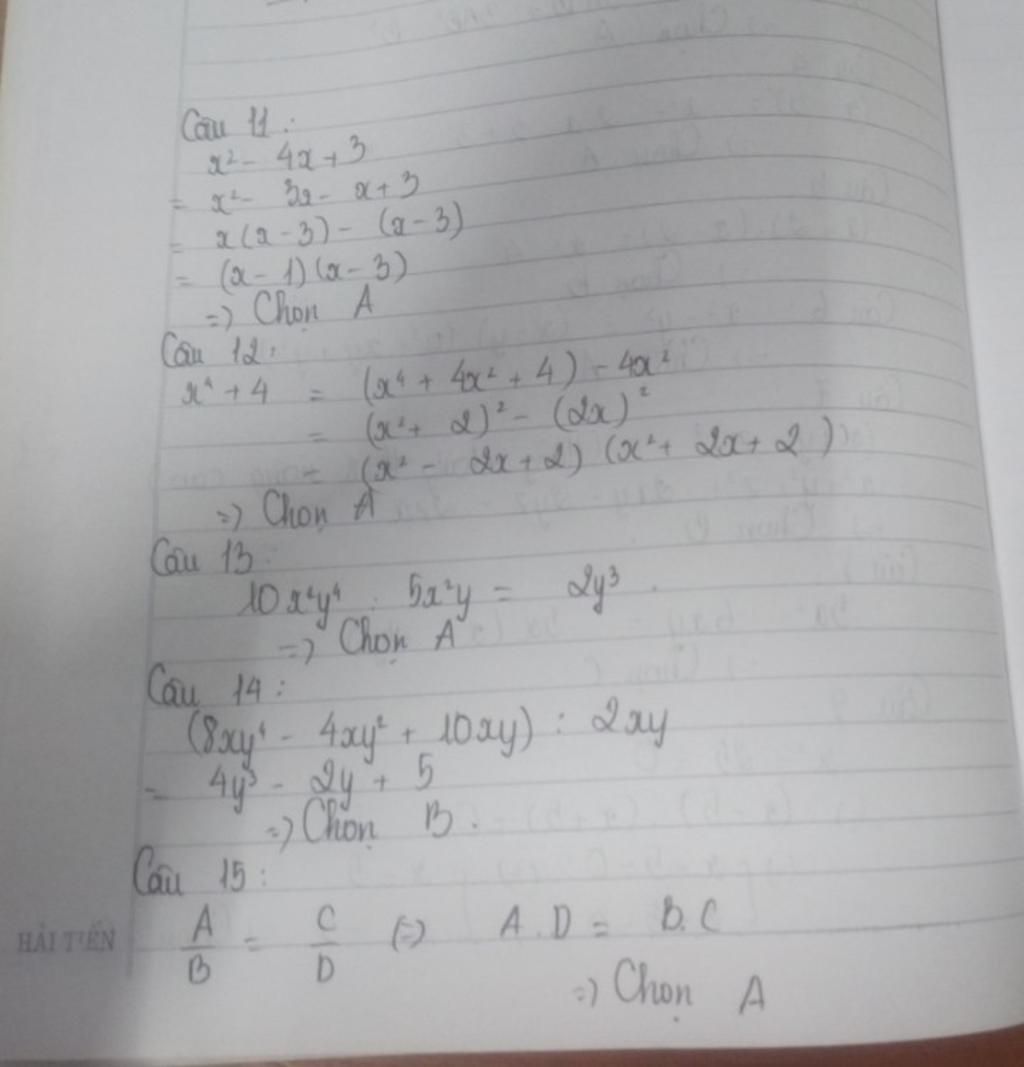 Câu 11:
x² - 4x + 3
= x² - 3x - x + 3
= x(x - 3) - (x - 3)
= (x - 1)(x - 3)
=> Chọn A
Câu 12:
x⁴ + 4 = (x⁴ + 4x² + 4) - 4x²
= (x² + 2)² - (2x)²
= (x² - 2x + 2) (x² + 2x + 2)
=> Chọn A
Câu 13:
10x²y⁴ : 5x²y = 2y³
=> Chọn A
Câu 14:
(8xy⁴ - 4xy² + 10xy) : 2xy
= 4y³ - 2y + 5
=> Chọn B.
Câu 15:
A/B = C/D (=) A.D = B.C
=> Chọn A
HẢI TIẾN